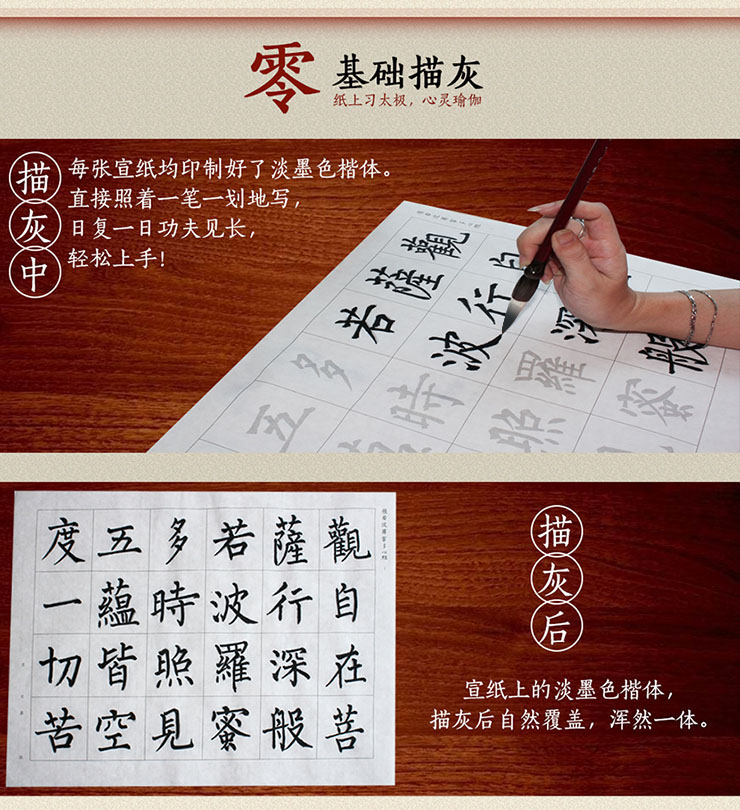 零
基础描灰
纸上习太极，心灵瑜伽
描灰中
每张宣纸均印制好了淡墨色楷体。
直接照着一笔一划地写，
日复一日功夫见长，
轻松上手！
觀自
薩行深般
若波羅蜜
多時照
五
觀自在菩
薩行深般
若波羅蜜
多時照見
五蘊皆空
度一切苦
描灰后
宣纸上的淡墨色楷体，
描灰后自然覆盖，浑然一体。